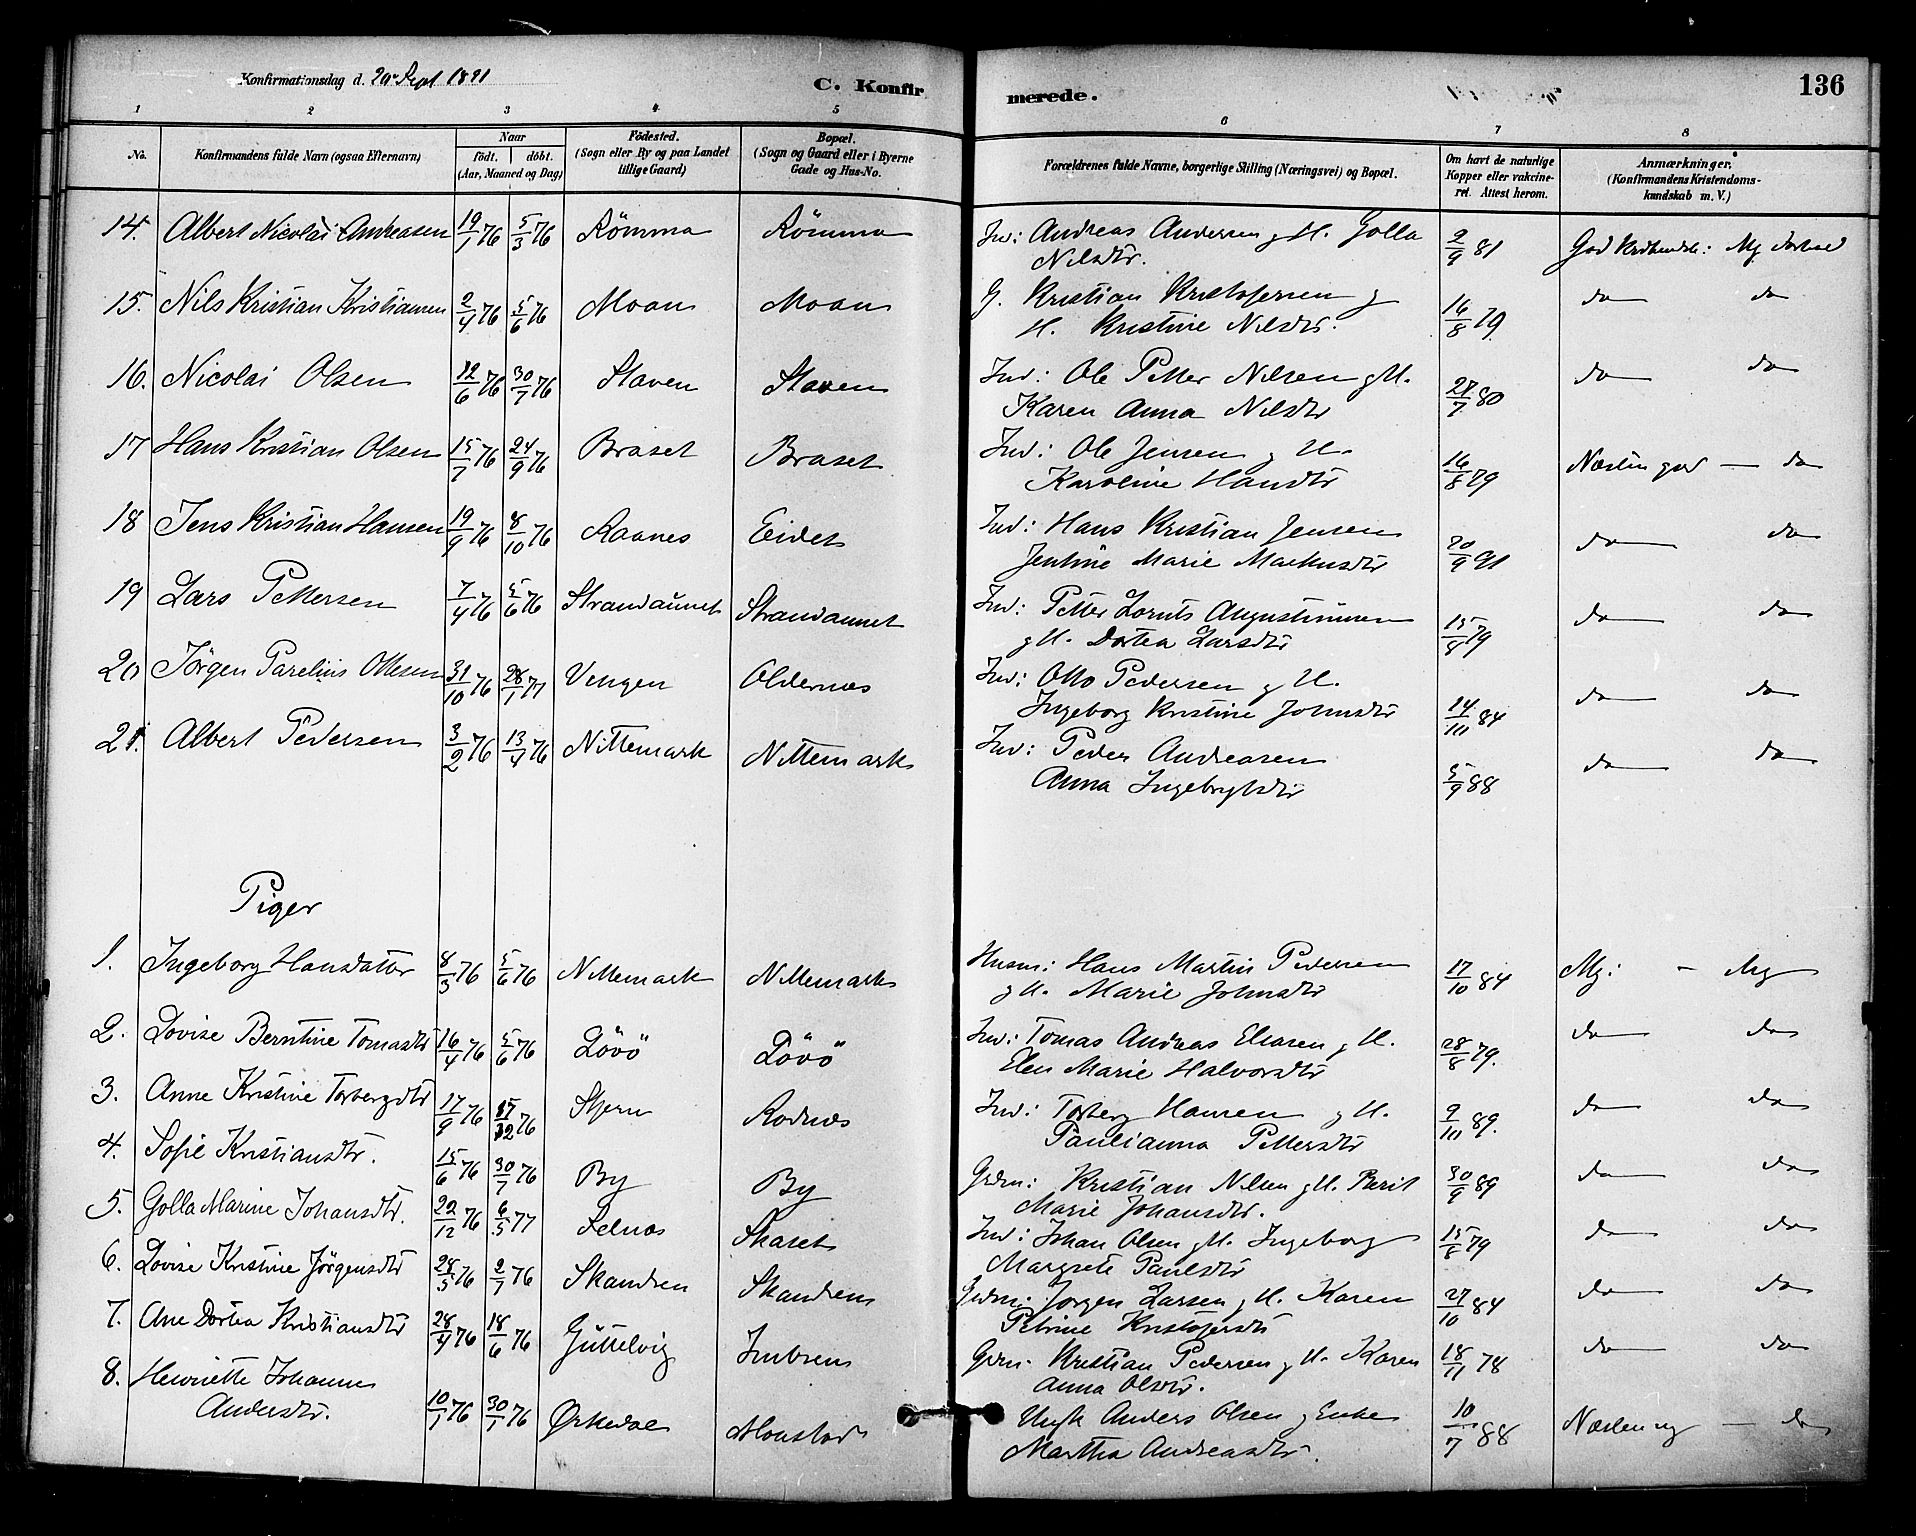 Konfirmationsdag d. 20 Sept 1891
C. Konfirmerede.
136
1 2 3 4 5 6 7 8
No.
Konfirmandens fulde Navn (ogsaa Efternavn)
Naar
födt. döbt.
(Aar, Maaned og Dag)
Födested.
(Sogn eller By og paa Landet
tillige Gaard)
Bopæl.
(Sogn og Gaard eller i Byerne
Gade og Hus-No.
Forældrenes fulde Navne, borgerlige Stilling (Næringsvei) og Bopæl.
Om havt de naturlige
Kopper eller vakcine-
ret. Attest herom.
Anmærkninger.
(Konfirmandens Kristendoms-
kundskab m. V.)
14. Albert Nicolai Andreasen 19/1 76 5/3 76 Römma Römma Ind: Andreas Andersen g H. Golla
Nilsdtr. 2/9 81 God Krdkundsk: Mg
15. Nils Kristian Kristiansen 2/4 76 5/6 76 Moan Moan G. Kristian Kristofersen g
H. Kristine Nilsdtr. 16/8 79 do do
16. Nicolai Olsen 12/6 76 30/7 76 Staven Staven Ind: Ole Petter Nilsen g H.
Karen Anna Nilsdtr 27/7 80 do do
17 Hans Kristian Olsen 15/7 76 24/9 76 Braset Braset Ind: Ole Jensen g H.
Karoline Hansdtr 16/8 79 Næsten god — do
18 Jens Kristian Hansen 19/9 76 8/10 76 Raanes Eidet Ind: Hans Kristian Jensen
Jentine Marie Markusdtr 20/9 91 do do
19 Lars Pettersen 7/4 76 5/6 76 Strandaunet Strandaunet Ind: Petter Lornts Augustinusen
g H. Dortea Larsdtr 15/8 79 do do
20 Jörgen Parelius Ottesen 31/10 76 28/1 77 Vengen Oldernæs Ind: Otto Pedersen g H.
Ingeborg Kristine Johnsdtr 14/10 84 do do
21. Albert Pedersen 3/2 76 13/4 76 Nittemark Nittemark Ind: Peder Andreasen
Anna Ingebrigtsdtr 5/9 88 do do
Piger
1. Ingeborg Hansdatter 8/3 76 5/6 76 Nittemark Nittemark Husm: Hans Martin Pedersen
g H. Marie Johnsdtr 17/10 84 Mg: — Mg
2. Lovise Berntine Tomasdtr 16/4 76 5/6 76 Lövö Lövö Ind: Tomas Andreas Eliasen g H.
Elen Marie Halvorsdtr 28/8 79. do do
3. Anne Kristine Torbergsdtr 17/9 76 17/12 76 Stjern Rodnæs Ind: Torberg Hansen g H.
Paulianna Pettersdtr 9/10 89. do do
4. Sofie Kristiansdtr. 15/6 76 30/7 76 By By Grdm: Kristian Nilsen g H. Berit
Marie Johansdtr. 30/9 89 do do
5. Golla Marine Johansdtr. 22/12 76 6/5 77 Selnæs Skaset Ind: Johan Olsen g H. Ingeborg
Margrete Paulsdtr 15/8 79 do do
6. Lovise Kristine Jörgensdtr 28/5 76 2/7 76 Skandsen Skandsen Grdm: Jorgen Larsen g H. Karen
Petrine Kristofersdtr 27/10 84 do do
7. Ane Dortea Kristiansdtr 28/4 76 18/6 76 Güttelvig Imbsen Grdm: Kristian Pedersen g H. Karen
Anna Olsdtr. 18/11 78 do do
8. Henriette Johanna
Andersdtr. 10/1 76 30/1 76 Ørkedal Monstad Ungk Anders Olsen g Enke
Martha Andreasdtr. 10/7 88 Næsten mg — do